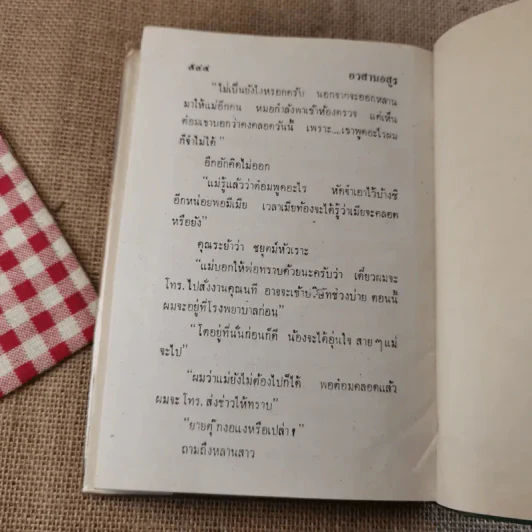 ๕๔๔ อวสานอสูร
“ไม่เป็นยังไงหรอกครับ นอกจากจะออกหลาน
มาให้แม่อีกคน หมอกำลังพาเข้าห้องตรวจ แต่เห็น
ต้อมเขาบอกว่าคงคลอดวันนี้ เพราะ....เขาพูดอะไรผม
ก็จำไม่ได้”
อึกอักคิดไม่ออก
“แม่รู้แล้วว่าต้อมพูดอะไร หัดจำเอาไว้บ้างซิ
อีกหน่อยพอมีเมีย เวลาเมียท้องจะได้รู้ว่าเมียจะคลอด
หรือยัง”
คุณระย้าว่า ชยุตม์หัวเราะ
“แม่บอกให้พ่อทราบด้วยนะครับว่า เดี๋ยวผมจะ
โทร. ไปสั่งงานคุณนที อาจจะเข้าบริษัทช่วงบ่าย ตอนนี้
ผมจะอยู่ที่โรงพยาบาลก่อน”
“โตอยู่ที่นั่นก่อนก็ดี น้องจะได้อุ่นใจ สาย ๆ แม่
จะไป”
“ผมว่าแม่ยังไม่ต้องไปก็ได้ พอต้อมคลอดแล้ว
ผมจะ โทร. ส่งข่าวให้ทราบ”
“ยายตุ๊กงอแงหรือเปล่า”
ถามถึงหลานสาว